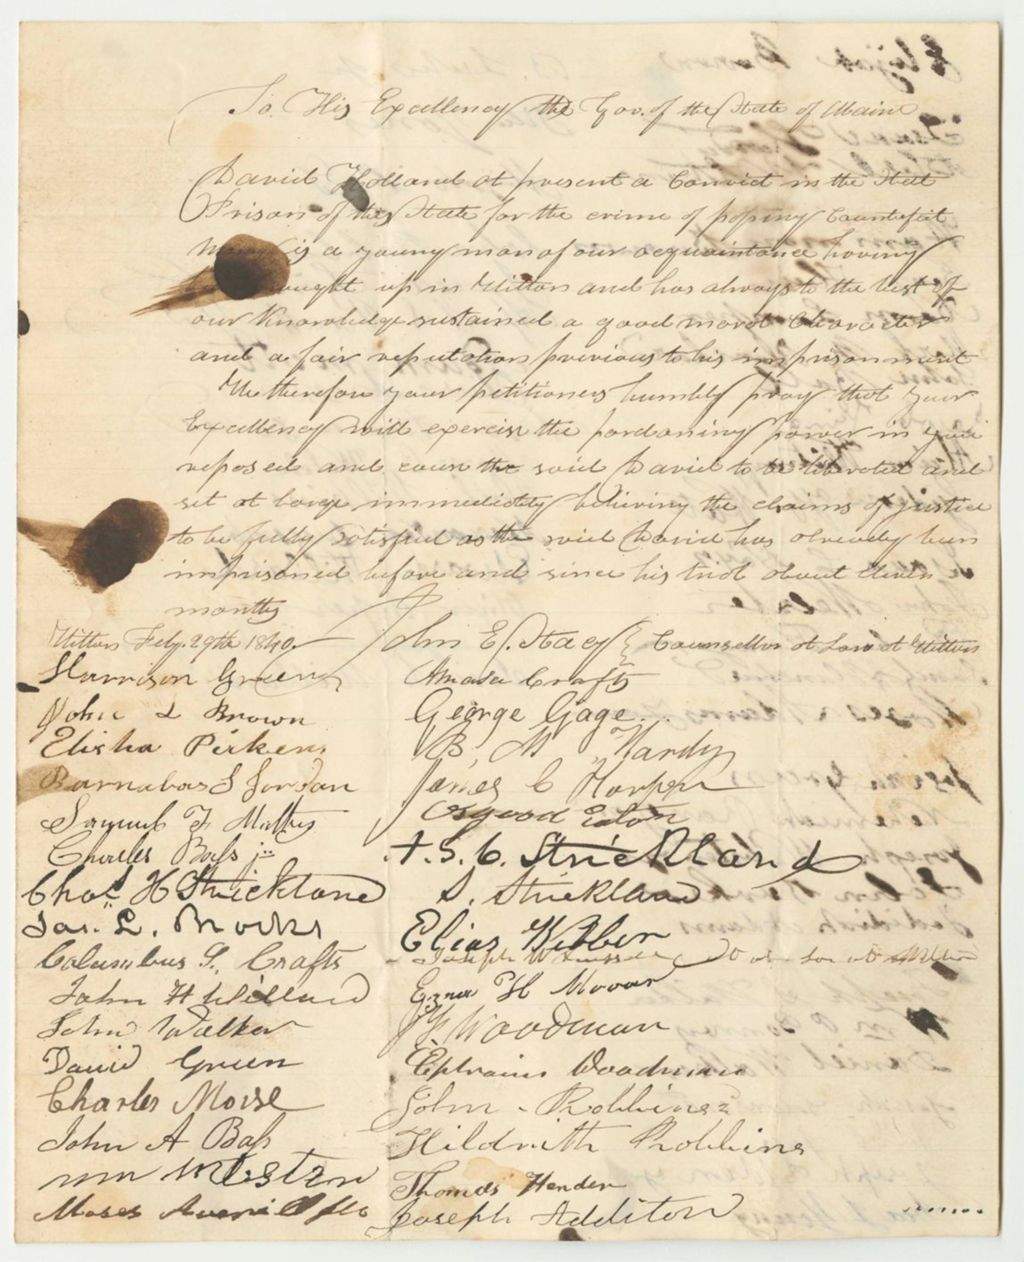 To His Excellency the Gov. of the State of Maine
David Holland at present a Convict in the State
Prison of this State for the crime of passing Counterfeit
money is a young man of our acquaintance having
been brought up in Wilton and has always to the best of
our knowledge sustained a good moral Character
and a fair reputation previous to his imprisonment
We therefore your petitioners humbly pray that your
Excellency will exercise the pardoning power in you
reposed and cause the said David to be liberated and
set at large immediately believing the claims of justice
to be fully satisfied as the said David has already been
imprisoned before and since his trial about eleven
months
Wilton Feby. 29th 1840. John E. Stacy } Counsellor at Law at Wilton
Harrison Green
John L Brown
Elisha Perkens
Barnabas S Jordan
Samuel F
Charles Bass jr
Chas. H Strickland
Jas. L. Brooks
Columbus G. Crafts
John H Willard
John Walker
David Green
Charles Morse
John A Bass
Wm
Moses
Amasa Crafts
George Gage
B. M. Hardy
James C Harper
Osgood Eaton
A. S. C. Strickland
S. Strickland
Elias Webber
Joseph
H Moore
Woodman
Ephraim Woodman
John Robbins
Hildreth Robbins
Thomas
Joseph Additon